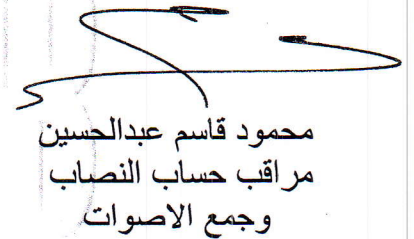 محمود قاسم عبدالحسين
مراقب حساب النصاب
وجمع الاصوات